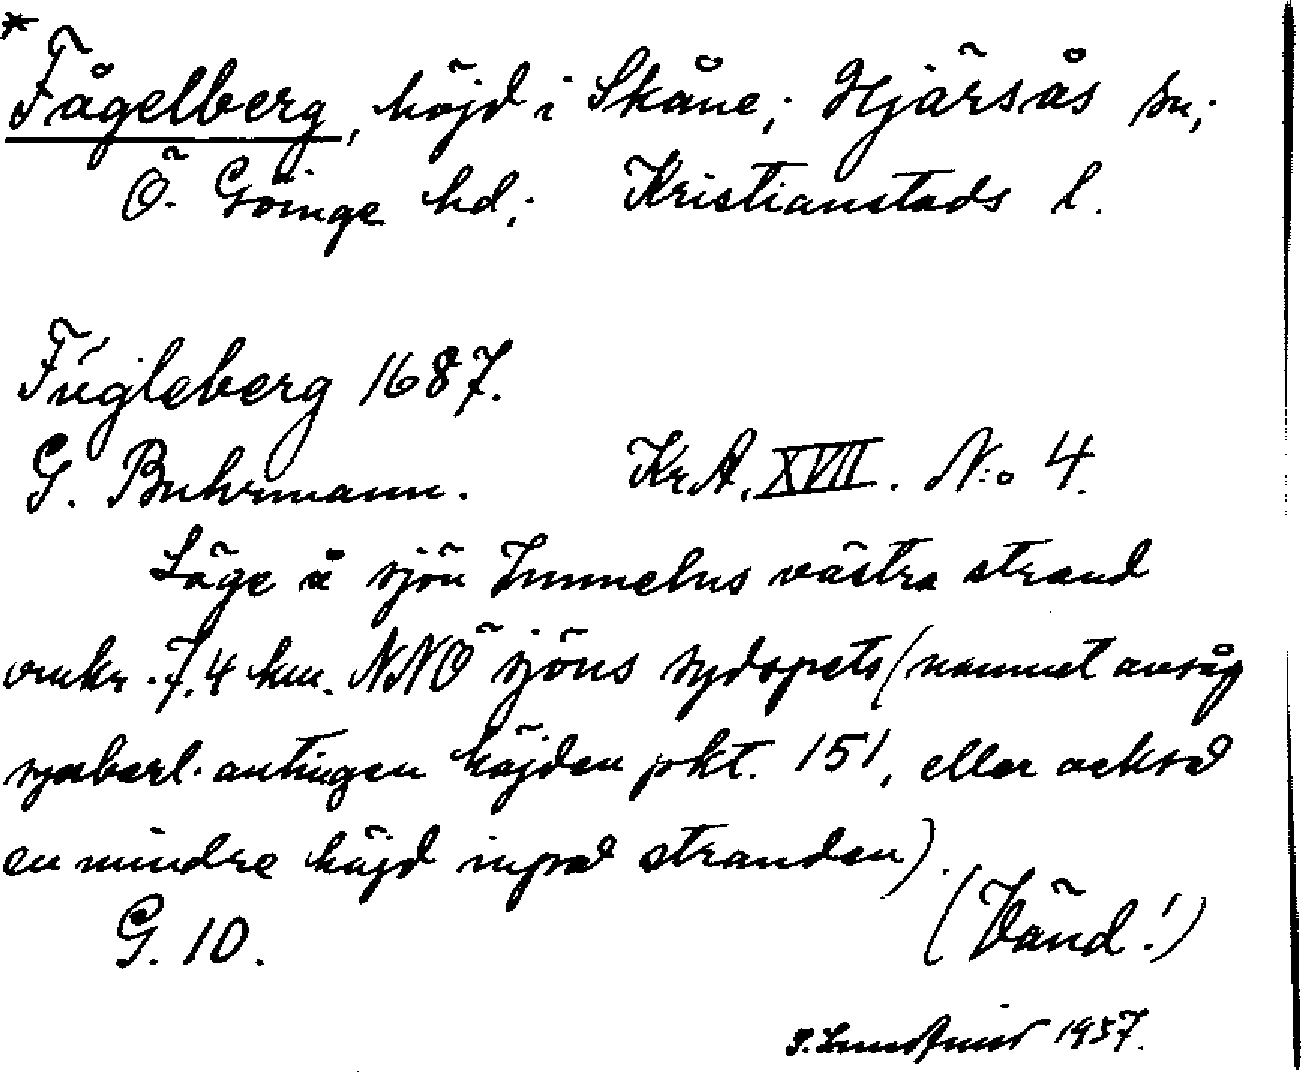 * Fågelberg, höjd i Skåne; Hjärsås sn;
Ö. Göinge hd; Kristianstads l.
Fúgleberg 1687.
G. Buhrmann. Kr.A. XVII. N:o 4.
Läge å sjön Immelns västra strand
omkr. 7,4 km. NNO sjöns sydspets (namnet avsåg
synbarl. antingen höjden pkt. 151, eller också
en mindre höjd inpå stranden).
G. 10. (Vänd!)
1937.